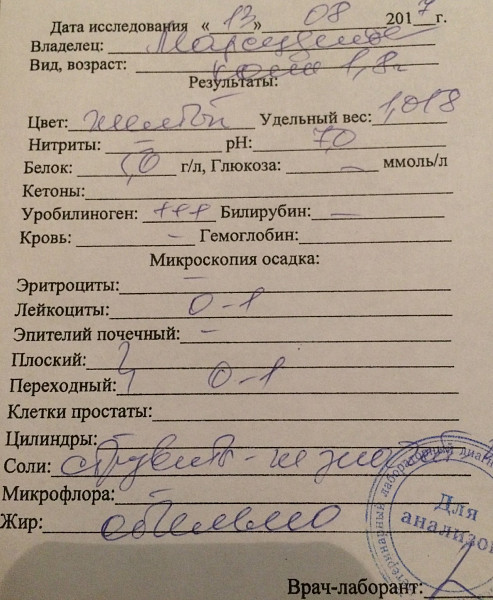 Дата исследования « 13 » 08 2017 г.
Владелец:
Вид, возраст: кошка 1,8г
Результаты:
Цвет: желтый Удельный вес: 1,018
Нитриты: – pH: 7,0
Белок: 1,0 г/л, Глюкоза: – ммоль/л
Кетоны:
Уробилиноген: +++ Билирубин: –
Кровь: – Гемоглобин:
Микроскопия осадка:
Эритроциты: –
Лейкоциты: 0-1
Эпителий почечный: –
Плоский:
Переходный: 0-1
Клетки простаты:
Цилиндры:
Соли: струвиты -
Микрофлора: –
Жир: обильно
Для
анализов
Врач-лаборант: